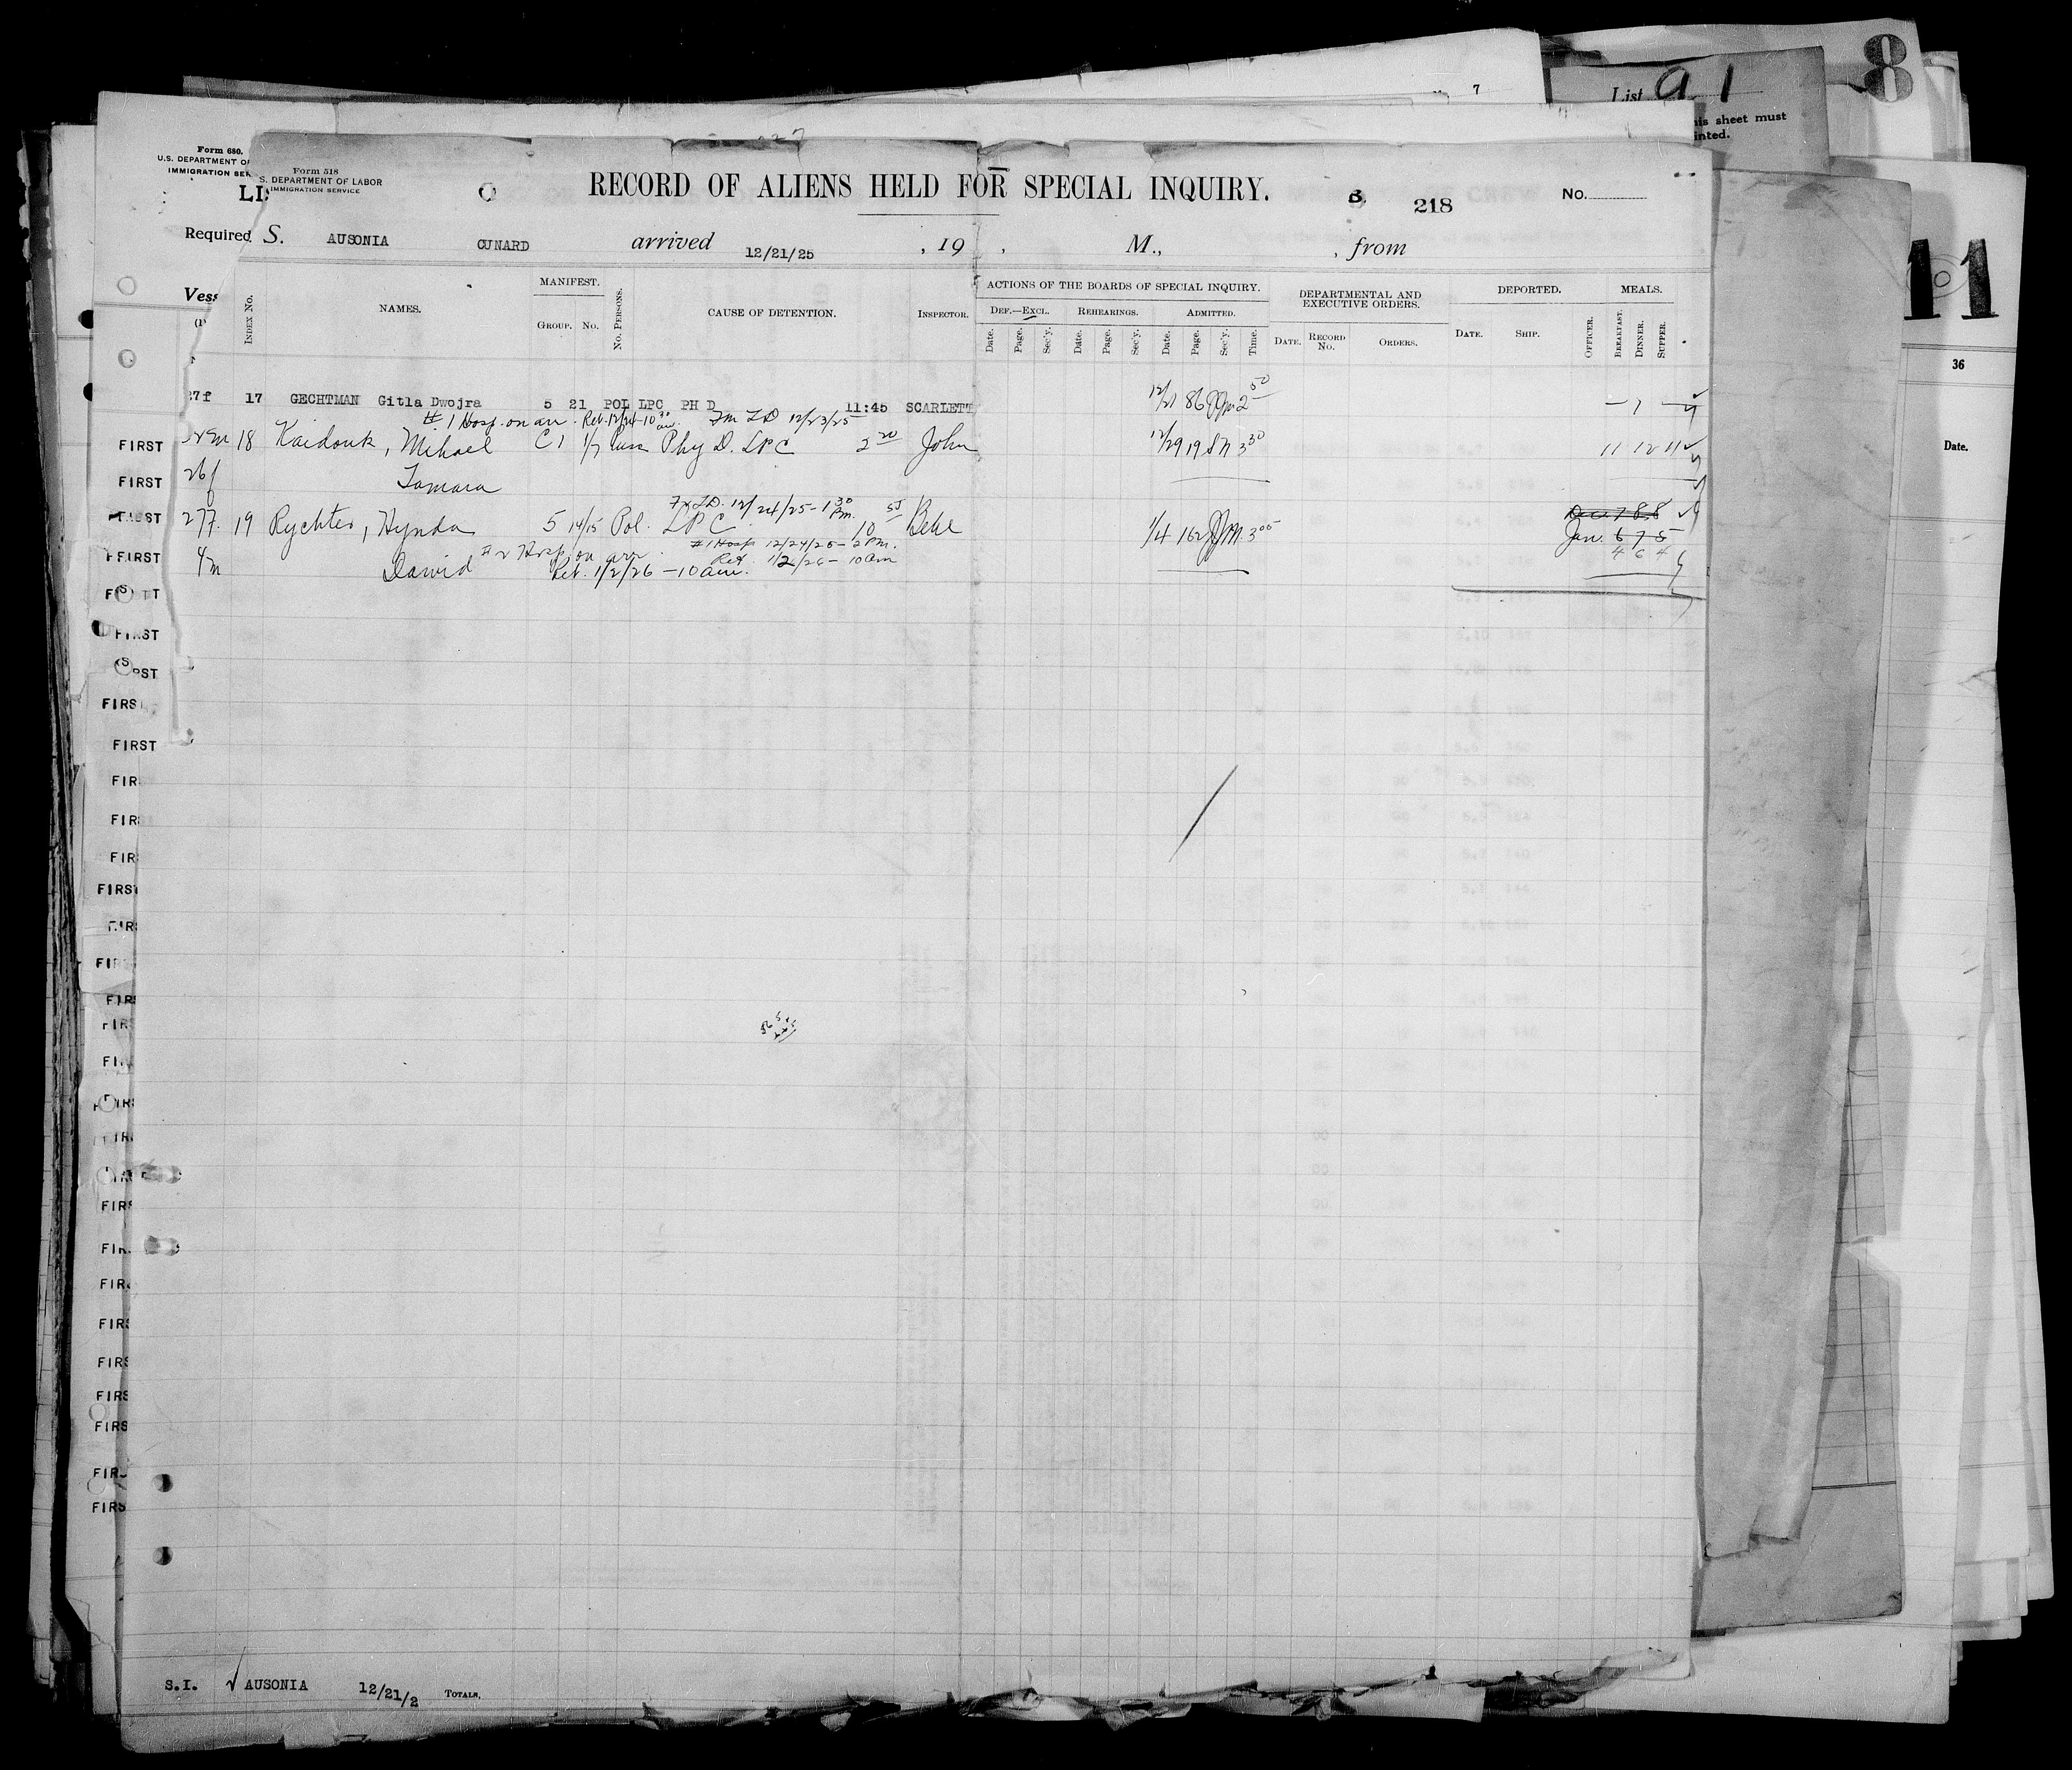 8
7
List 91
his sheet must
inted.
Form 680.
U.S. DEPARTMENT OF
IMMIGRATION SER
Form 518
S. DEPARTMENT OF LABOR
IMMIGRATION SERVICE
LIS
RECORD OF ALIENS HELD FOR SPECIAL INQUIRY.
218
No.
Required
S. AUSONIA CUNARD arrived 12/21/25 , 19 , M., , from
11
Vess
INDEX No.
NAMES.
MANIFEST.
GROUP. No.
No. PERSONS.
CAUSE OF DETENTION.
INSPECTOR.
ACTIONS OF THE BOARDS OF SPECIAL INQUIRY.
DEF.—EXCL. REHEARINGS. ADMITTED.
Date. Page. Sec'y. Date. Page. Sec'y. Date. Page. Sec'y. Time.
DEPARTMENTAL AND
EXECUTIVE ORDERS.
DATE. RECORD No. ORDERS.
DEPORTED.
DATE. SHIP.
OFFICER.
MEALS.
BREAKFAST. DINNER. SUPPER.
36
Date.
27f 17 GECHTMAN Gitla Dwojra 5 21 POL LPC PH D 11:45 SCARLETT 12/21 86 JJM 2 50 — 1 —
#1 Hosp. on arr. Ret. 12/24-10 30 am. 12/23/25
FIRST 18 Kaidouk, Mihael C1 1/7 Russ Phy D. LPC 2 20 John 12/29 19 3 30 11 12 11
FIRST 26f Tamara
Fr LD. 12/24/25-1 30 pm.
FIRST 27f. 19 Rychter, Hynda 5 14/15 Pol. LPC 10 55 Bebe 1/4 162 JJM. 3 00 Dec 7 8 8
Jan. 6 7 5
#1 Hosp 12/24/25 - 2 PM.
4 6 4
FIRST 4m Dawid # 2 Hosp on arr. Ret 1/2/26 - 10am
Ret. 1/2/26 - 10 am.
FIRST
FIRST
FIRST
S.I. AUSONIA 12/21/2 TOTALS,